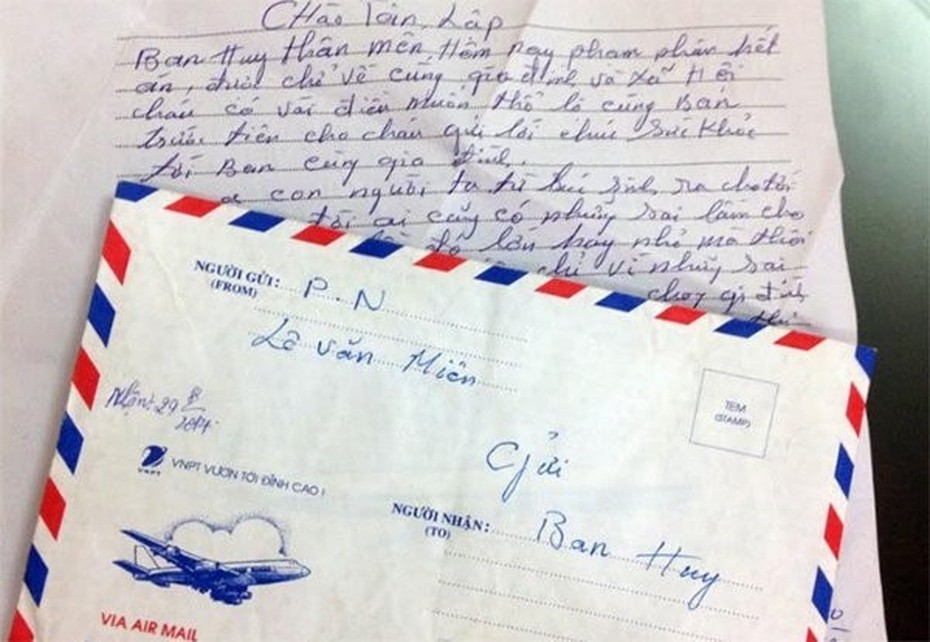 Chào Tân Lập
Ban Huy thân mến Hôm nay phạm nhân hết
án, được chở về cùng gia đình và xã Hội
cháu có vài điều muốn thổ lộ cùng Ban
trước tiên cho cháu gửi lời chúc sức khỏe
tới Ban cùng gia đình.
con người ta từ lúc sinh ra cho tới
tới ai cũng có những sai lầm cho
đó lớn hay nhỏ mà thôi
chỉ vì những sai
chạy gì đình
NGƯỜI GỬI: P.N
(FROM)
Lê Văn Miên
TEM
(STAMP)
Nhận: 29
VNPT
VNPT VƯƠN TỚI ĐỈNH CAO!
Gửi
NGƯỜI NHẬN: Ban Huy
(TO)
VIA AIR MAIL